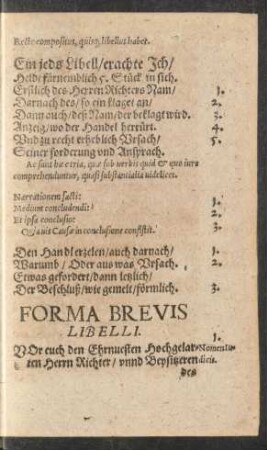 Recte compositus, quisq; libellus habet.
Ein jeds Libell/ erachte Ich/
Helde fürnemblich 5. Stück in sich.
Erstlich des Herren Richters Nam/ 1.
Darnach des/ so ein klaget an/ 2.
Dann auch/ deß Nam/ der beklagt wird. 3.
Anzeig/ wo der Handel herrürt. 4.
Vnd zu recht erheblich Vrsach/ 5.
Seiner forderung vnd Ansprach.
Ac sunt hæc tria, quæ sub verbis quid & quo iure
comprehenduntur, quasi substantialia uidelicet.
Narrationem facti: 1.
Medium concludendi: 2.
Et ipsa conclusio: 3.
Quauis Causæ in conclusione consistit.
Den Handl erzelen/ auch darnach/ 1.
Warumb/ Oder aus was Vrsach. 2.
Etwas gefordert/ dann letzlich/
Der Beschluß/ wie gemelt/ förmlich. 3.
FORMA BREVIS
LIBELLI.
1.
VOr euch den Ehrnuesten Hochgelar- Nomen Iu-
ten Herrn Richter/ vnnd Beysitzeren dicis.
des